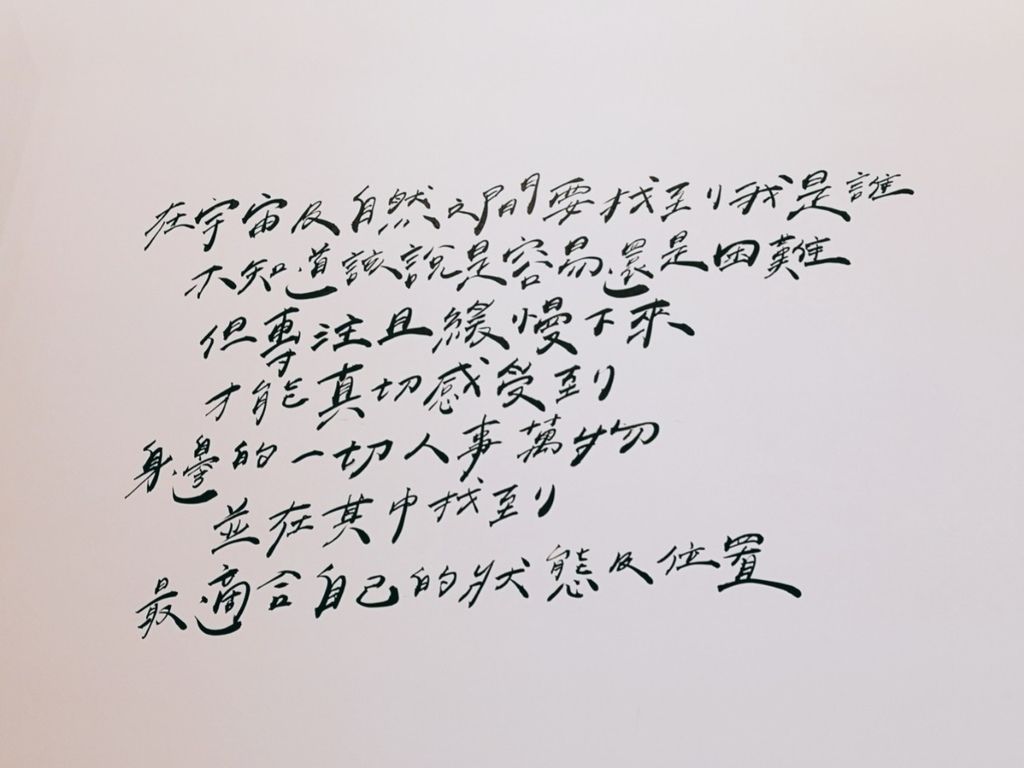 在宇宙及自然之間要找到我是誰
不知道該說是容易還是困難
但專注且緩慢下來
才能真切感受到
身邊的一切人事萬物
並在其中找到
最適合自己的狀態及位置